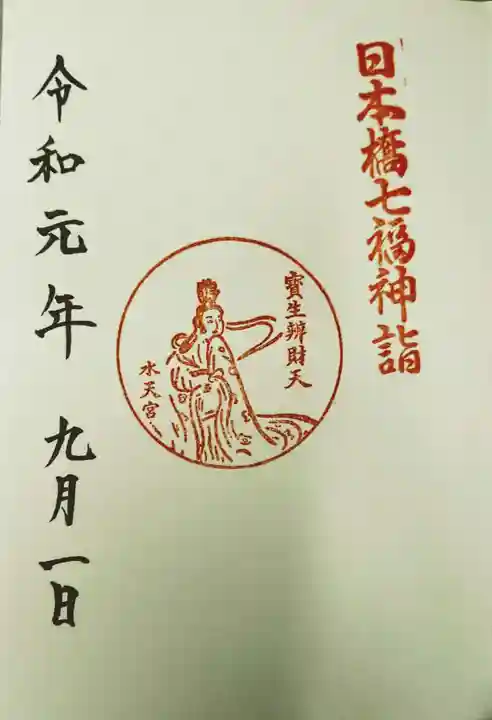 日本橋七福神詣
寳生辨財天
水天宮
令和元年 九月一日